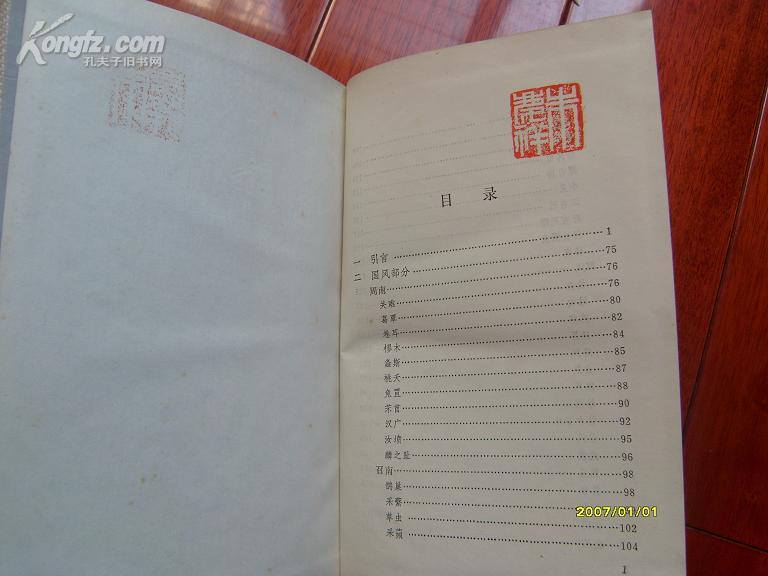 Kongfz.com
孔夫子旧书网
目录
一 引言 1
二 国风部分 75
周南 76
关雎 76
葛覃 80
卷耳 82
樛木 84
螽斯 85
桃夭 87
兔罝 88
芣苢 90
汉广 92
汝坟 95
麟之趾 96
召南 98
鹊巢 98
采蘩
草虫 102
采蘋 104
1
2007/01/01